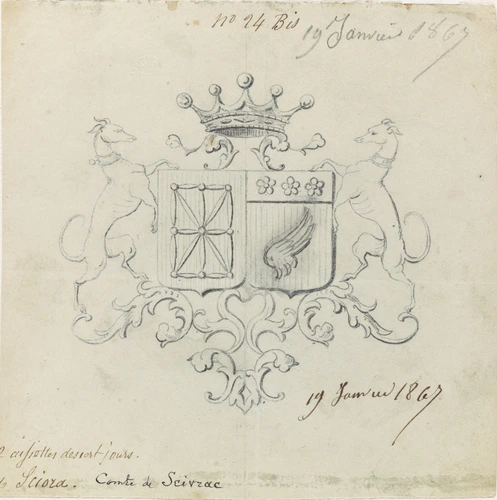 no 24 Bis
19 Janvier 1867
19 Janvier 1867
2 assiettes dessert jours.
Sciora. Comte de Scivrac